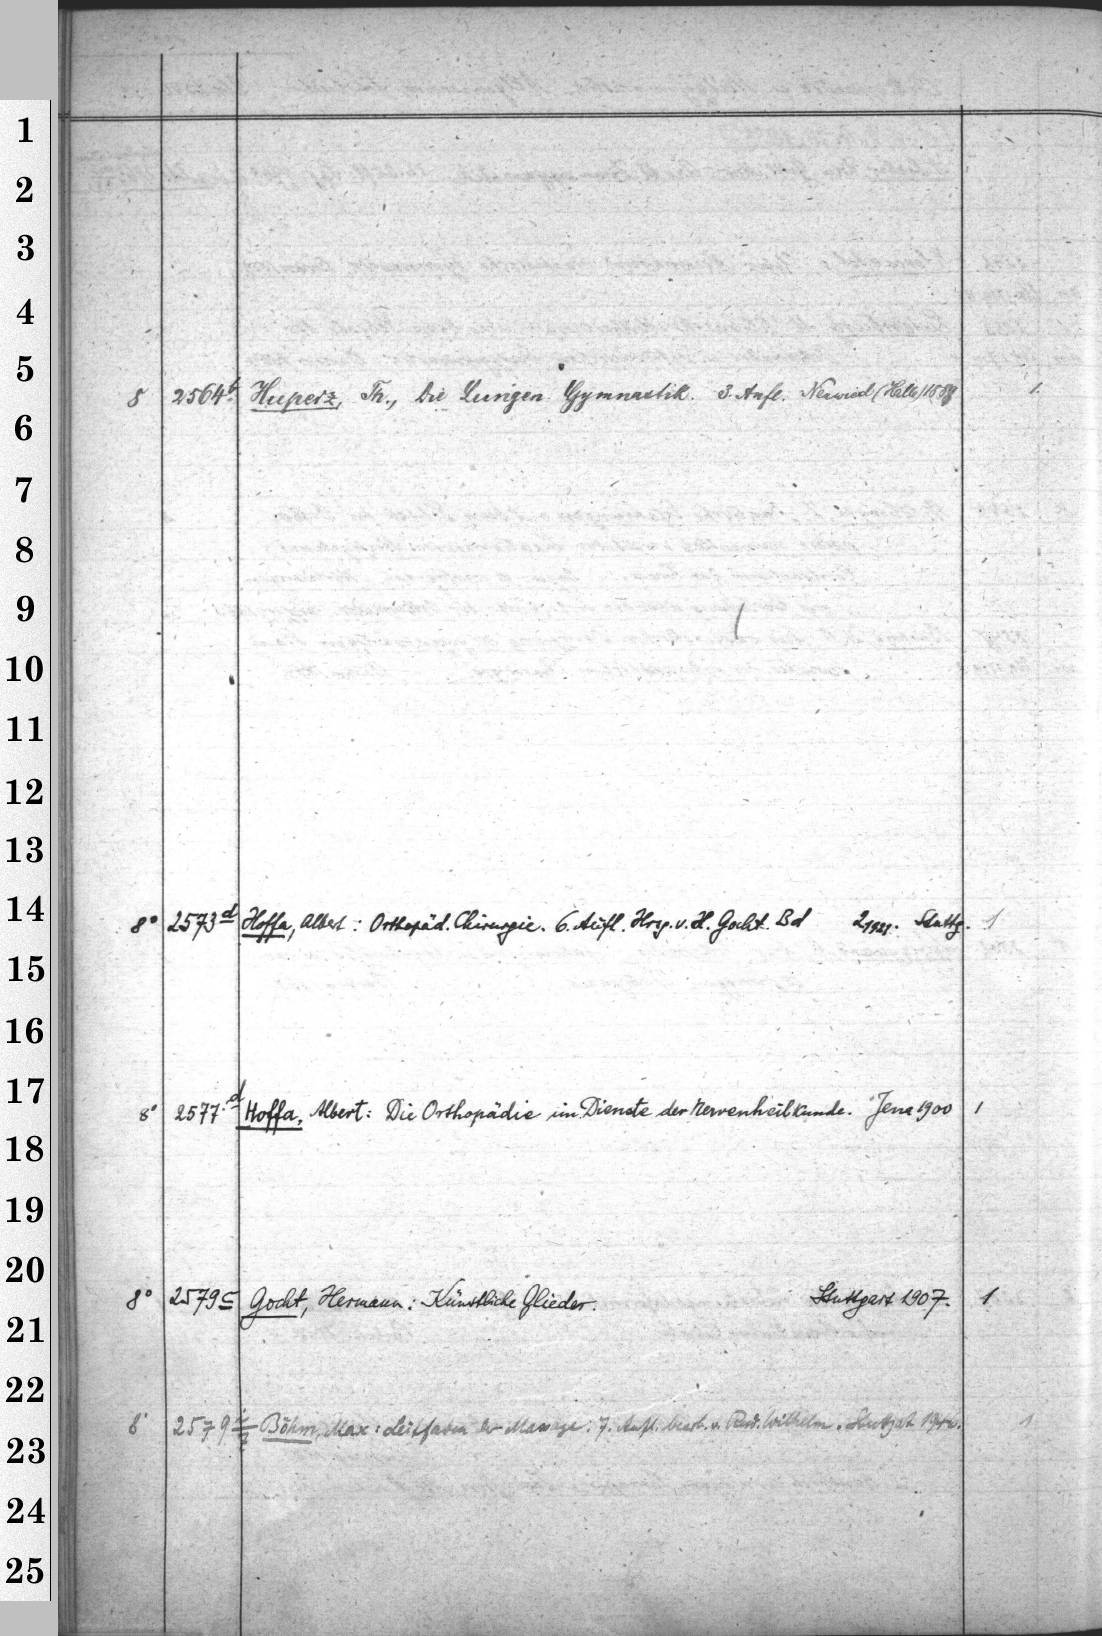 1
2
3
4
5
8 2564b Huperz, Th., Die Lungen Gymnastik. 3. Aufl. Neuwied 1.
6
7
8
9
10
11
12
13
14
8° 2573d Hoffa, Albert: Orthopäd. Chirurgie. 6. Aufl. Hrsg. v. H. Gocht. Bd 2, 1921. Stuttg. 1
15
16
17
8° 2577d Hoffa, Albert: Die Orthopädie im Dienste der Nervenheilkunde. Jena 1900 1
18
19
20
8° 2579c Gocht, Hermann: Künstliche Glieder. Stuttgart 1907. 1
21
22
8° 2579 Böhm, Max: Leitfaden der Massage. 7. Aufl. bearb. v. Wilhelm. Stuttgart 1
23
24
25